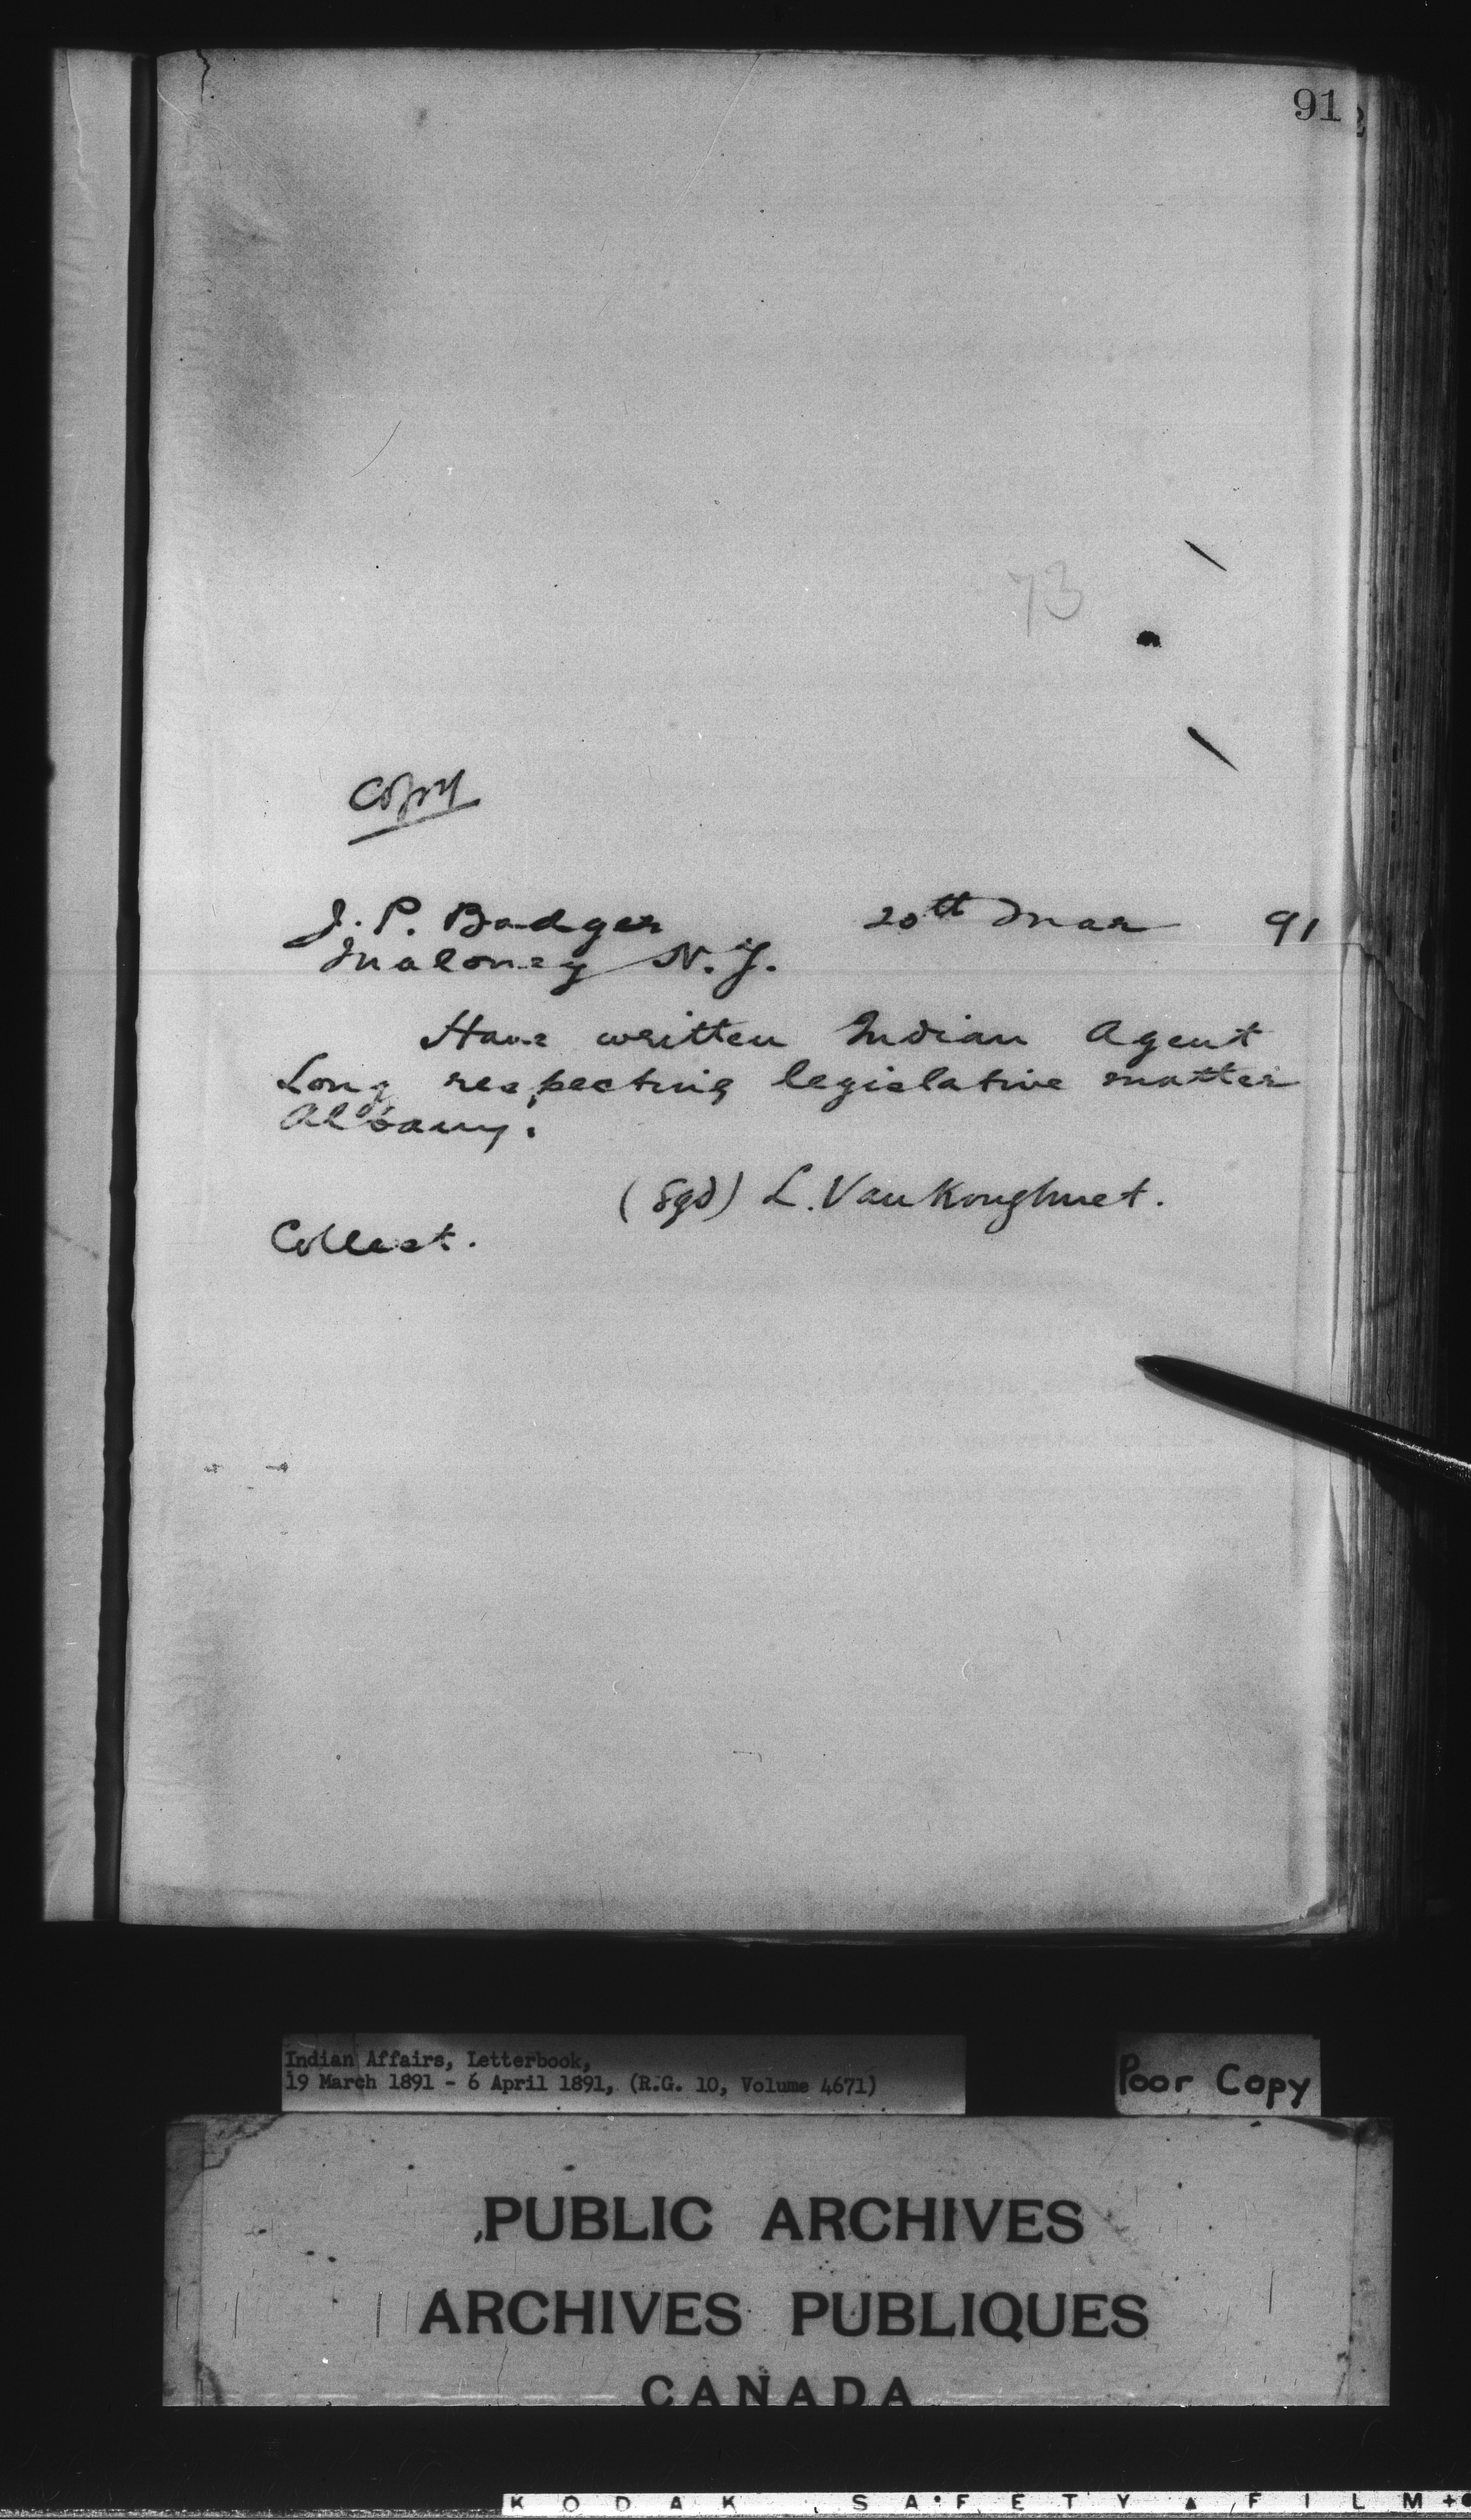 91
73
Copy
J. P. Badger 20th Mar 91
Maloney N.Y.
Have written Indian Agent
Long respecting legislative matter
Albany.
(Sgd) L. VanKoughnet.
Collect.
Indian Affairs, Letterbook,
19 March 1891 - 6 April 1891, (R.G. 10, Volume 4671)
Poor Copy
PUBLIC ARCHIVES
ARCHIVES PUBLIQUES
CANADA
KODAK SAFETY FILM